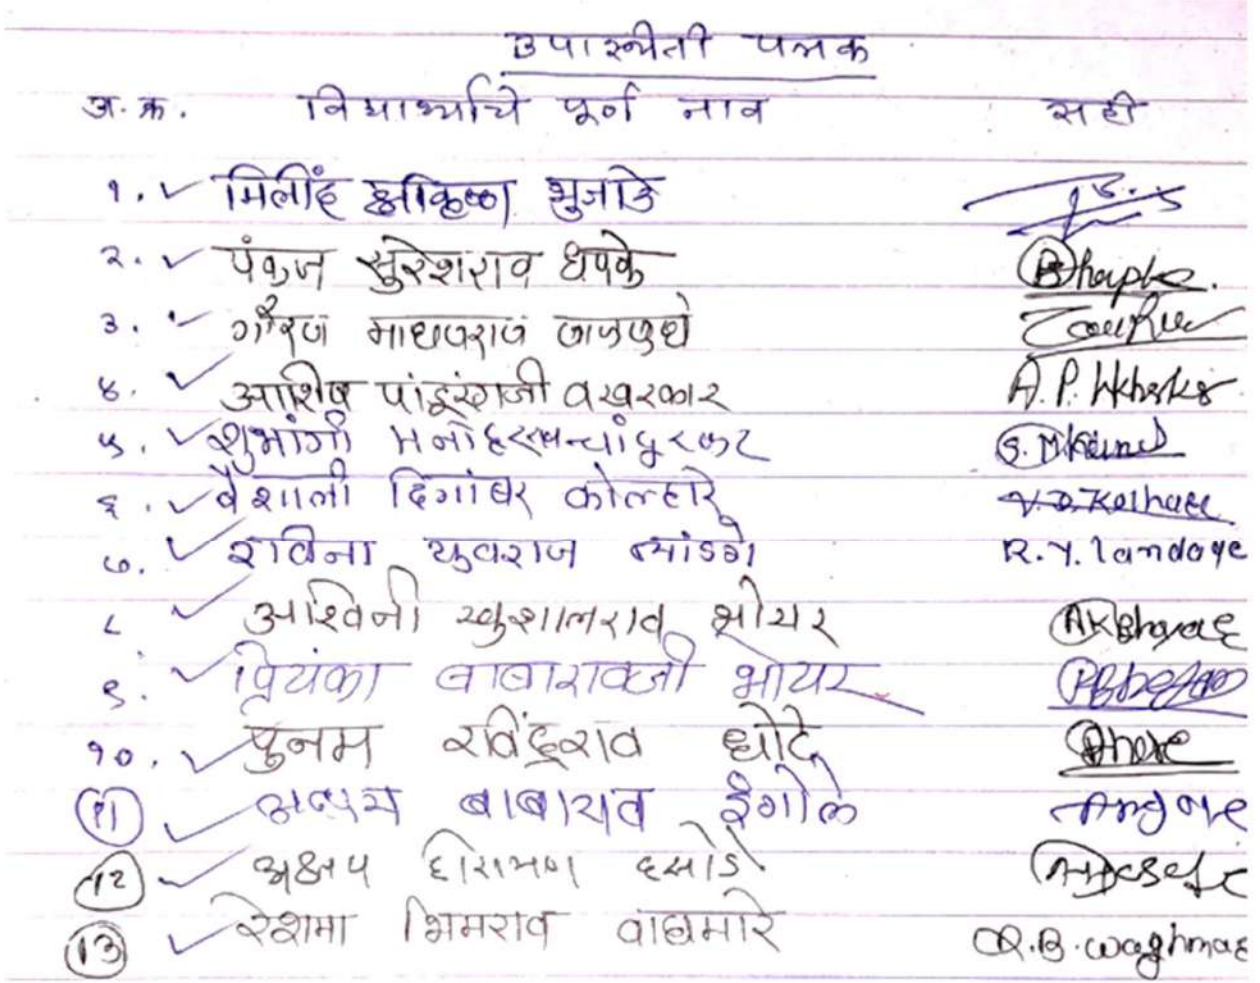 उपास्थीती पत्रक
अ.क्र. विद्यार्थ्याचे पूर्ण नाव सही
१. मिलींद भुजाडे
२. पंकज सुरेशराव धपके Bhapke.
३. गौरव माधवराव
४. आशिष पांडूरंगजी वखरकार A.P.
५. शुभांगी मनोहरराव चांदुरकर S.M.
६. वैशाली दिगांबर कोल्हारे V.D. Kolhare
७. रविना युवराज लांडगे R.Y. landage
८ अश्विनी खुशालराव भोयर AKBhoyar
९. प्रियंका बाबारावजी भोयर
१०. पुनम रविंद्रराव धोटे
11 बाबाराव इंगोले
12 अक्षय हिरामण हसोडे
13 रेशमा भिमराव वाघमारे R.B. waghmare